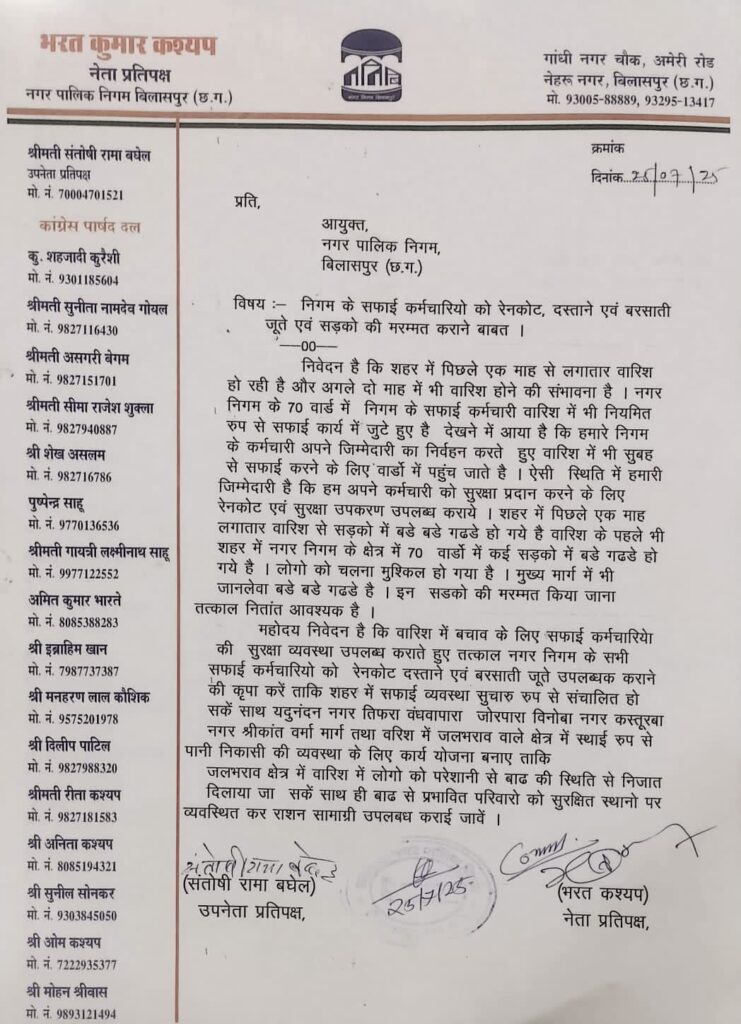 भरत कुमार कश्यप
नेता प्रतिपक्ष
नगर पालिक निगम बिलासपुर (छ.ग.)
गांधी नगर चौक, अमेरी रोड
नेहरू नगर, बिलासपुर (छ.ग.)
मो. 93005-88889, 93295-13417
श्रीमती संतोषी रामा बघेल
उपनेता प्रतिपक्ष
मो. नं. 70004701521
कांग्रेस पार्षद दल
कु. शहजादी कुरैशी
मो. नं. 9301185604
श्रीमती सुनीता नामदेव गोयल
मो. नं. 9827116430
श्रीमती असगरी बेगम
मो. नं. 9827151701
श्रीमती सीमा राजेश शुक्ला
मो. नं. 9827940887
श्री शेख असलम
मो. नं. 982716786
पुष्पेन्द्र साहू
मो. नं. 9770136536
श्रीमती गायत्री लक्ष्मीनाथ साहू
मो. नं. 9977122552
अमित कुमार भारते
मो. नं. 8085388283
श्री इब्राहिम खान
मो. नं. 7987737387
श्री मनहरण लाल कौशिक
मो. नं. 9575201978
श्री दिलीप पाटिल
मो. नं. 9827988320
श्रीमती रीता कश्यप
मो. नं. 9827181583
श्री अनिता कश्यप
मो. नं. 8085194321
श्री सुनील सोनकर
मो. नं. 9303845050
श्री ओम कश्यप
मो. नं. 7222935377
श्री मोहन श्रीवास
मो. नं. 9893121494
क्रमांक
दिनांक 25/07/25
प्रति,
आयुक्त,
नगर पालिक निगम,
बिलासपुर (छ.ग.)
विषय :– निगम के सफाई कर्मचारियो को रेनकोट, दस्ताने एवं बरसाती
जूते एवं सड़को की मरम्मत कराने बाबत ।
—00—
निवेदन है कि शहर में पिछले एक माह से लगातार वारिश
हो रही है और अगले दो माह में भी वारिश होने की संभावना है । नगर
निगम के 70 वार्ड में निगम के सफाई कर्मचारी वारिश में भी नियमित
रुप से सफाई कार्य में जुटे हुए है देखने में आया है कि हमारे निगम
के कर्मचारी अपने जिम्मेदारी का निर्वहन करते हुए वारिश में भी सुबह
से सफाई करने के लिए वार्डो में पहुंच जाते है । ऐसी स्थिति में हमारी
जिम्मेदारी है कि हम अपने कर्मचारी को सुरक्षा प्रदान करने के लिए
रेनकोट एवं सुरक्षा उपकरण उपलब्ध कराये । शहर में पिछले एक माह
लगातार वारिश से सड़को में बडे बडे गढडे हो गये है वारिश के पहले भी
शहर में नगर निगम के क्षेत्र में 70 वार्डो में कई सड़को में बडे गढडे हो
गये है । लोगो को चलना मुश्किल हो गया है । मुख्य मार्ग में भी
जानलेवा बडे बडे गढडे है । इन सडको की मरम्मत किया जाना
तत्काल नितांत आवश्यक है ।
महोदय निवेदन है कि वारिश में बचाव के लिए सफाई कर्मचारियेा
की सुरक्षा व्यवस्था उपलब्ध कराते हुए तत्काल नगर निगम के सभी
सफाई कर्मचारियो को रेनकोट दस्ताने एवं बरसाती जूते उपलब्धक कराने
की कृपा करें ताकि शहर में सफाई व्यवस्था सुचारु रुप से संचालित हो
सकें साथ यदुनंदन नगर तिफरा वंधवापारा जोरपारा विनोबा नगर कस्तूरबा
नगर श्रीकांत वर्मा मार्ग तथा वरिश में जलभराव वाले क्षेत्र में स्थाई रुप से
पानी निकासी की व्यवस्था के लिए कार्य योजना बनाए ताकि
जलभराव क्षेत्र में वारिश में लोगो को परेशानी से बाढ की स्थिति से निजात
दिलाया जा सकें साथ ही बाढ से प्रभावित परिवारो को सुरक्षित स्थानो पर
व्यवस्थित कर राशन सामाग्री उपलबध कराई जावें ।
(संतोषी रामा बघेल)
उपनेता प्रतिपक्ष,
25/7/25
(भरत कश्यप)
नेता प्रतिपक्ष,